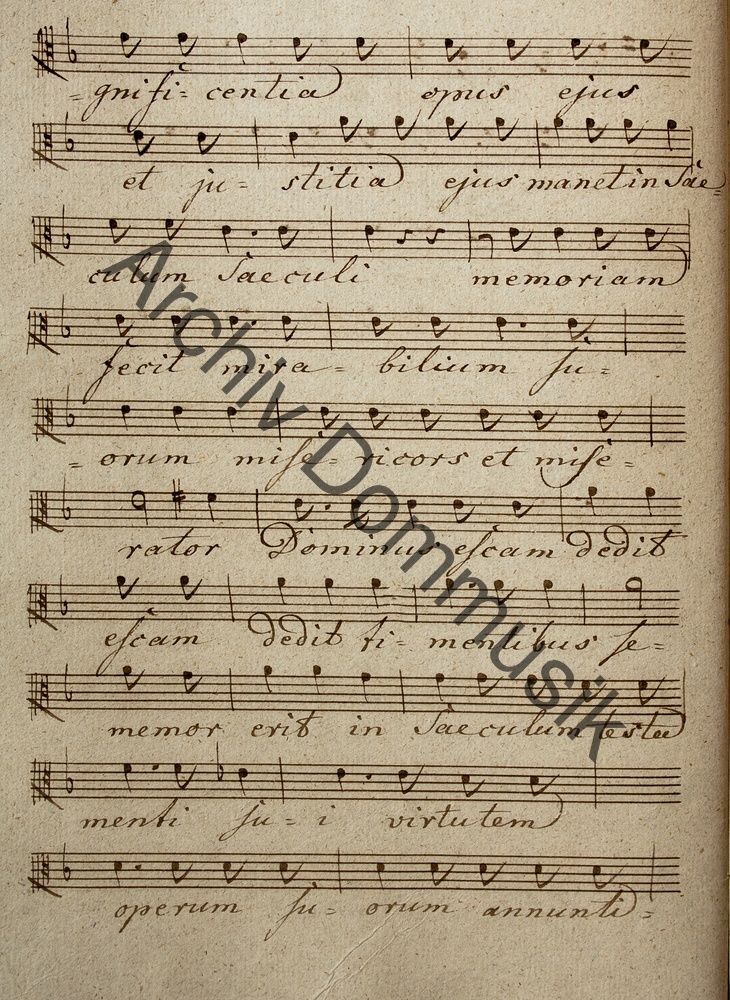 = gnifi = centia opus ejus
et ju = stitia ejus manet in Sae
culum Saeculi memoriam
fecit mira = bilium su =
= orum mise = ricors et mise =
rator Dominus escam dedit
escam dedit ti = mentibus se =
memor erit in Saeculum testa
menti su = i virtutem
operum su = orum annunti =
Archiv Dommusik